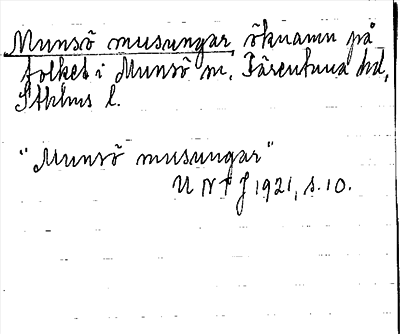 Munsö musungar öknamn på
folket i Munsö sn, Färentuna hd,
Sthlms l.
"Munsö musungar"
U N T J 1921, s. 10.